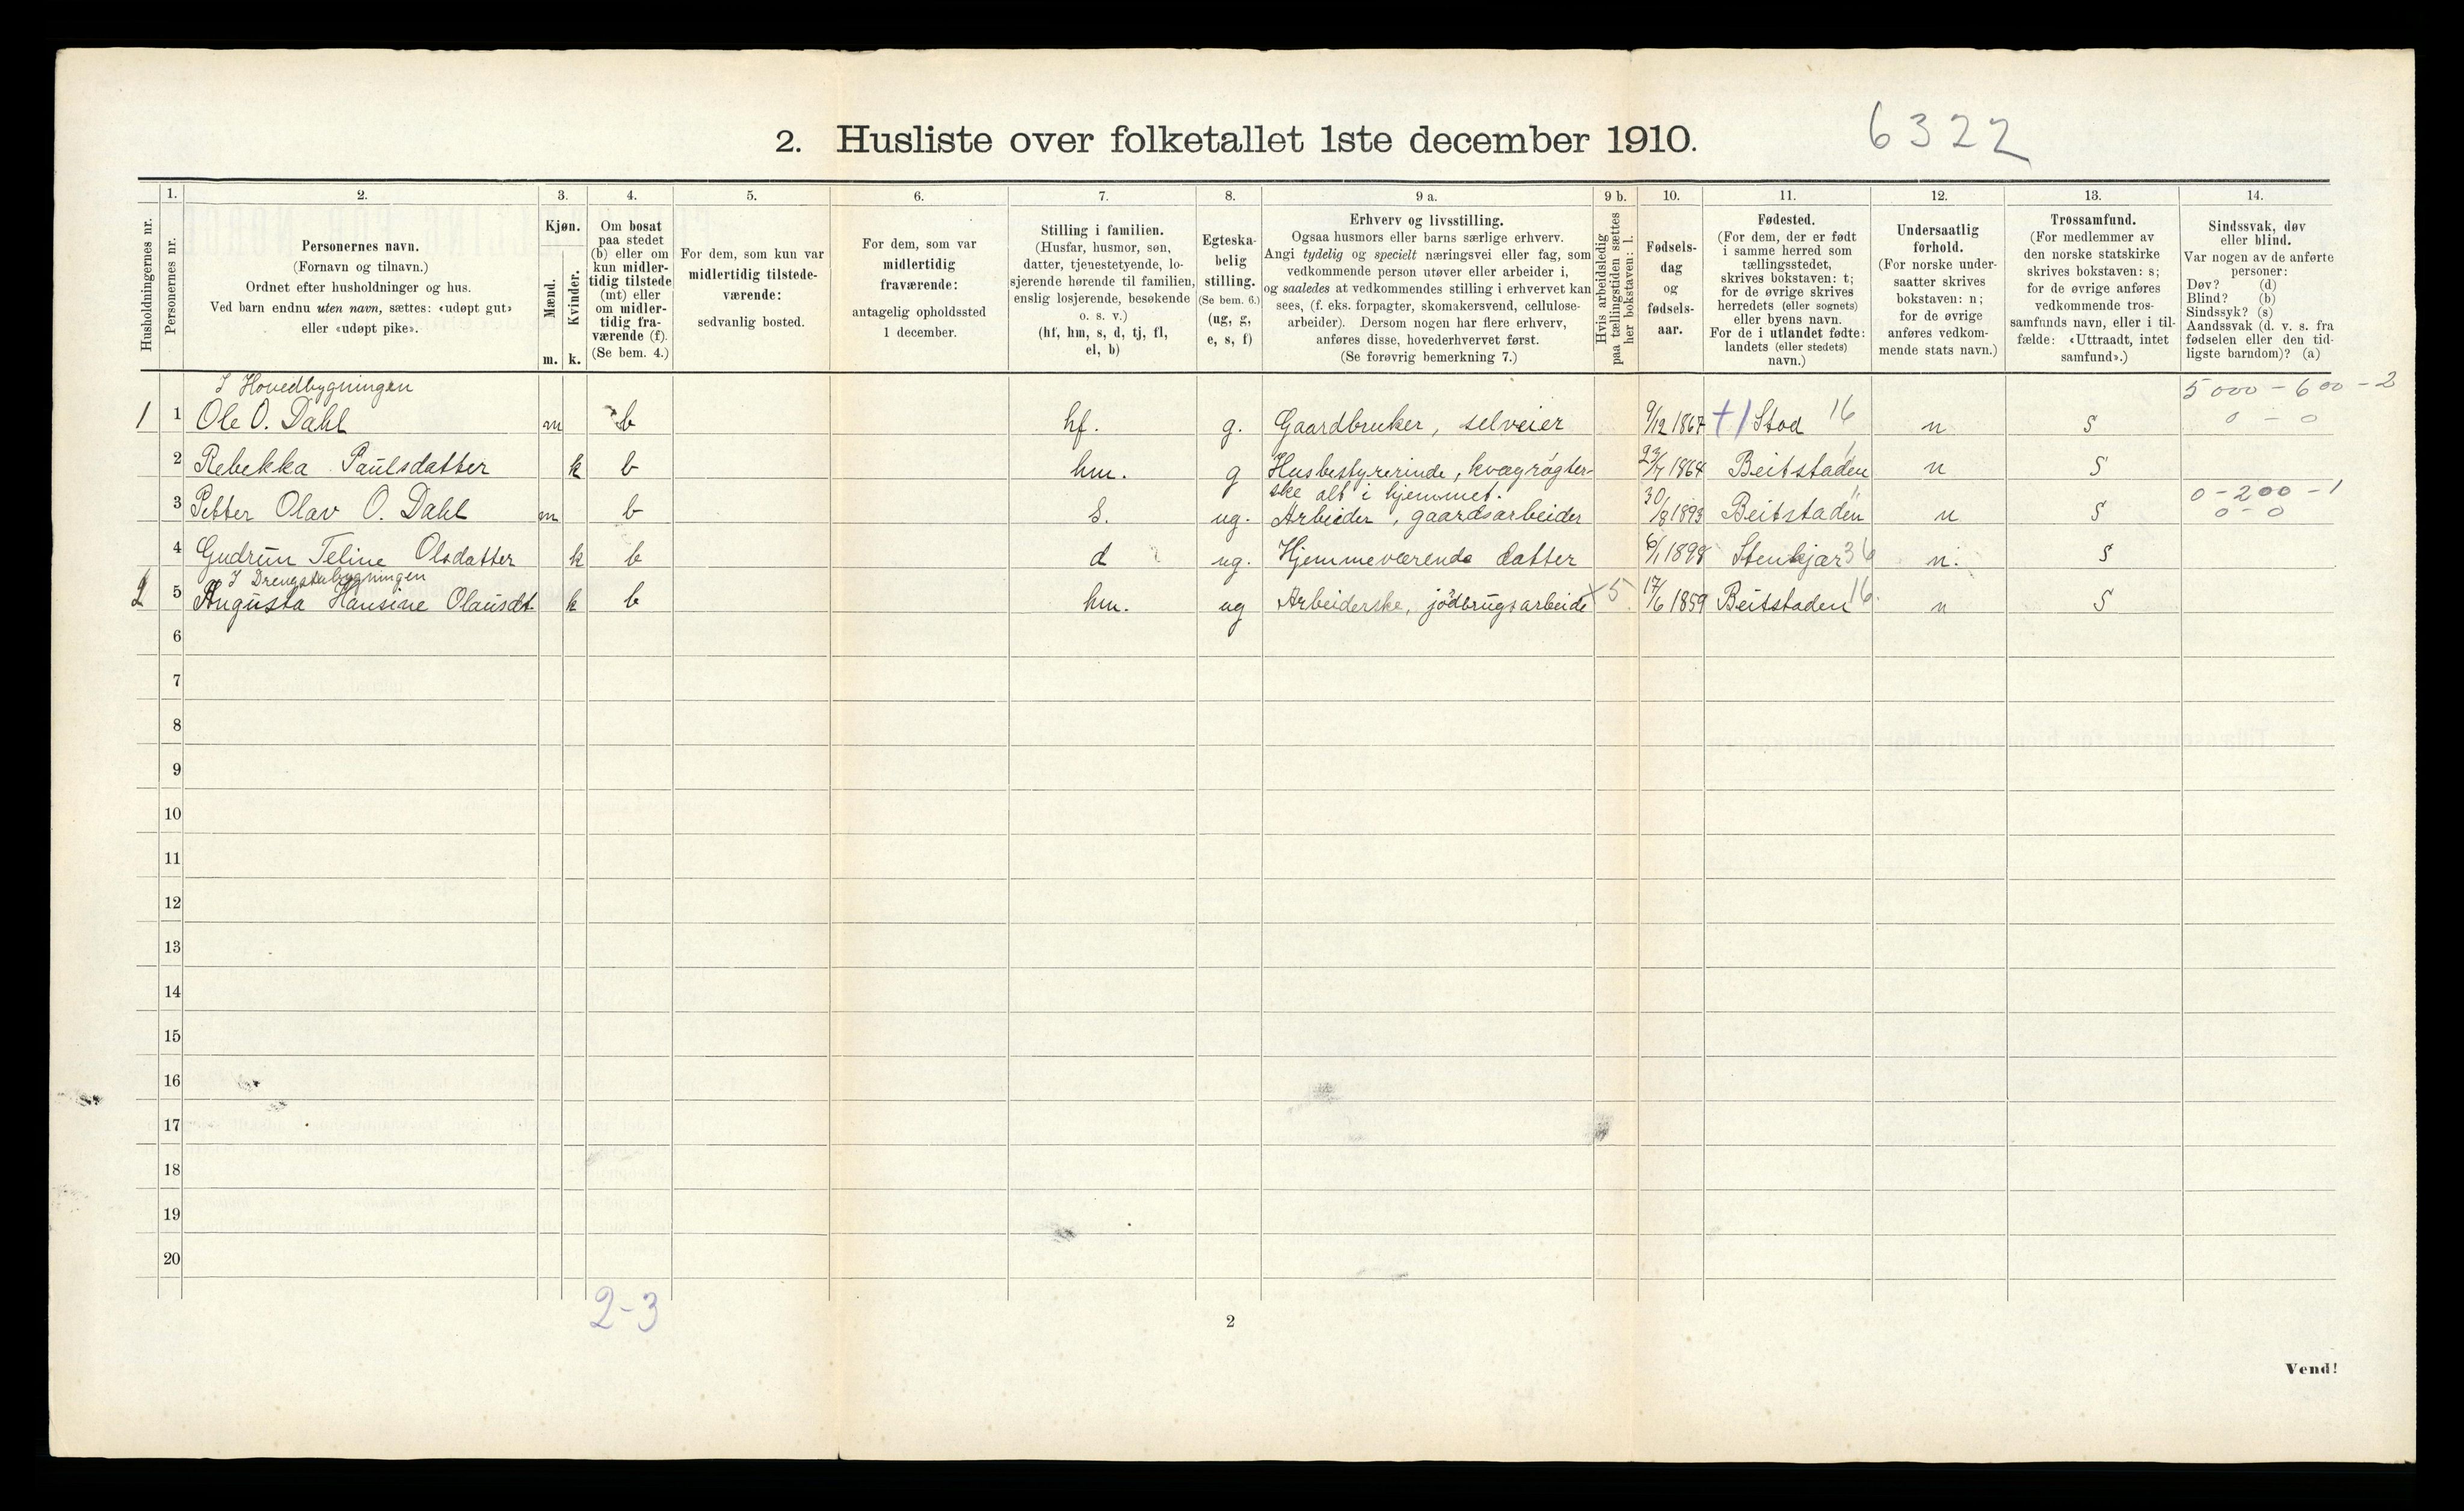 2. Husliste over folketallet 1ste december 1910.
6322
Husholdningernes nr.
1.
Personernes nr.
2.
Personernes navn.
(Fornavn og tilnavn.)
Ordnet efter husholdninger og hus.
Ved barn endnu uten navn, sættes: «udøpt gut»
eller «udøpt pike».
3.
Kjøn.
Mænd.
Kvinder.
m. k.
4.
Om bosat
paa stedet
(b) eller om
kun midler-
tidig tilstede
(mt) eller
om midler-
tidig fra-
værende (f).
(Se bem. 4.)
5.
For dem, som kun var
midlertidig tilstede-
værende:
sedvanlig bosted.
6.
For dem, som var
midlertidig
fraværende:
antagelig opholdssted
1 december.
7.
Stilling i familien.
(Husfar, husmor, søn,
datter, tjenestetyende, lo-
sjerende hørende til familien,
enslig losjerende, besøkende
o. s. v.)
(hf, hm, s, d, tj, fl,
el, b)
8.
Egteska-
belig
stilling.
(Se bem. 6.)
(ug, g,
e, s, f)
9 a.
Erhverv og livsstilling.
Ogsaa husmors eller barns særlige erhverv.
Angi tydelig og specielt næringsvei eller fag, som
vedkommende person utøver eller arbeider i,
og saaledes at vedkommendes stilling i erhvervet kan
sees, (f. eks. forpagter, skomakersvend, cellulose-
arbeider). Dersom nogen har flere erhverv,
anføres disse, hovederhvervet først.
(Se forøvrig bemerkning 7.)
9 b.
Hvis arbeidsledig
paa tællingstiden sættes
her bokstaven: l.
10.
Fødsels-
dag
og
fødsels-
aar.
11.
Fødested.
(For dem, der er født
i samme herred som
tællingsstedet,
skrives bokstaven: t;
for de øvrige skrives
herredets (eller sognets)
eller byens navn.
For de i utlandet fødte:
landets (eller stedets)
navn.)
12.
Undersaatlig
forhold.
(For norske under-
saatter skrives
bokstaven: n;
for de øvrige
anføres vedkom-
mende stats navn.)
13.
Trossamfund.
(For medlemmer av
den norske statskirke
skrives bokstaven: s;
for de øvrige anføres
vedkommende tros-
samfunds navn, eller i til-
fælde: «Uttraadt, intet
samfund».)
14.
Sindssvak, døv
eller blind.
Var nogen av de anførte
personer:
Døv? (d)
Blind? (b)
Sindssyk? (s)
Aandssvak (d. v. s. fra
fødselen eller den tid-
ligste barndom)? (a)
I Hovedbygningen
5000 - 600 - 2
1 1 Ole O. Dahl m b hf. g. Gaardbruker, selveier 9/12 1867 +1 Stod 16 n s 0 - 0
2 Rebekka Paulsdatter k b hm. g Husbestyrerinde, kvægrøgter- 1864 Beitstaden n s
ske alt i hjemmet.
0 - 200 - 1
3 Petter Olav O. Dahl m b s. ug. Arbeider, gaardsarbeider 30/8 1893 Beitstaden n s 0 - 0
4 Gudrun Teline Olsdatter k b d ug. Hjemmeværende datter 6/1 1898 Stenkjær 36 n. s
I Drengstubygningen
2 5 Augusta Hansine Olausdt. k b hm. ug Arbeiderske, jødbrugsarbeide +5 17/6 1859 Beitstaden 16. n s
6
7
8
9
10
11
12
13
14
15
16
17
18
19
20
2-3
2
Vend!